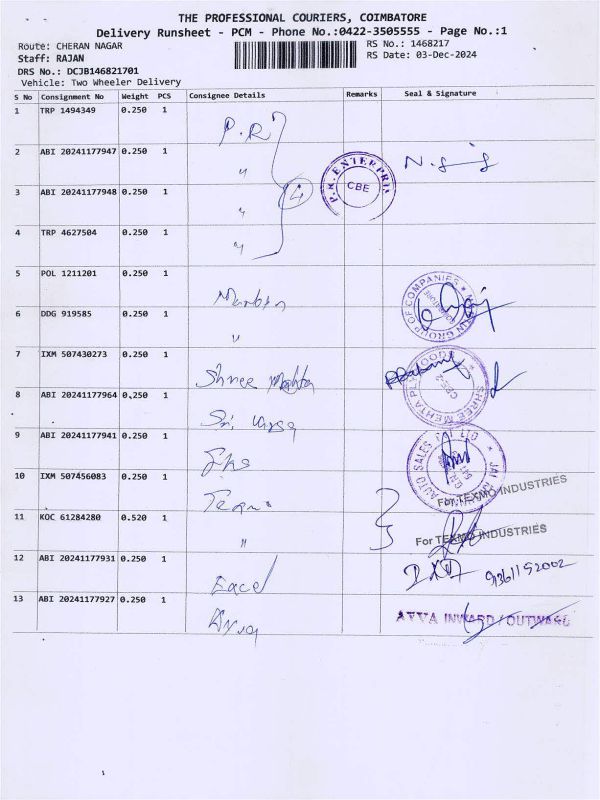 THE PROFESSIONAL COURIERS, COIMBATORE
Delivery Runsheet - PCM - Phone No.:0422-3505555 - Page No.:1
Route: CHERAN NAGAR
RS No.: 1468217
Staff: RAJAN
RS Date: 03-Dec-2024
DRS No.: DCJB146821701
Vehicle: Two Wheeler Delivery
S No Consignment No Weight PCS Consignee Details Remarks Seal & Signature
1 TRP 1494349 0.250 1 P.R
2 ABI 20241177947 0.250 1 "
P.R. ENTERPRI CBE
3 ABI 20241177948 0.250 1 "
4
4 TRP 4627504 0.250 1 "
5 POL 1211201 0.250 1
GROUP OF COMPANIES
6 DDG 919585 0.250 1 "
7 IXM 507430273 0.250 1 Shree Mehta
SHREE MEHTA PLYWOODS
8 ABI 20241177964 0.250 1 Sri
9 ABI 20241177941 0.250 1
AUTO SALES LTD JAI
10 IXM 507456083 0.250 1
For TEXMO INDUSTRIES
11 KOC 61284280 0.520 1 "
For TEXMO INDUSTRIES
12 ABI 20241177931 0.250 1
9361152002
13 ABI 20241177927 0.250 1
AVVA INWARD / OUTWARD